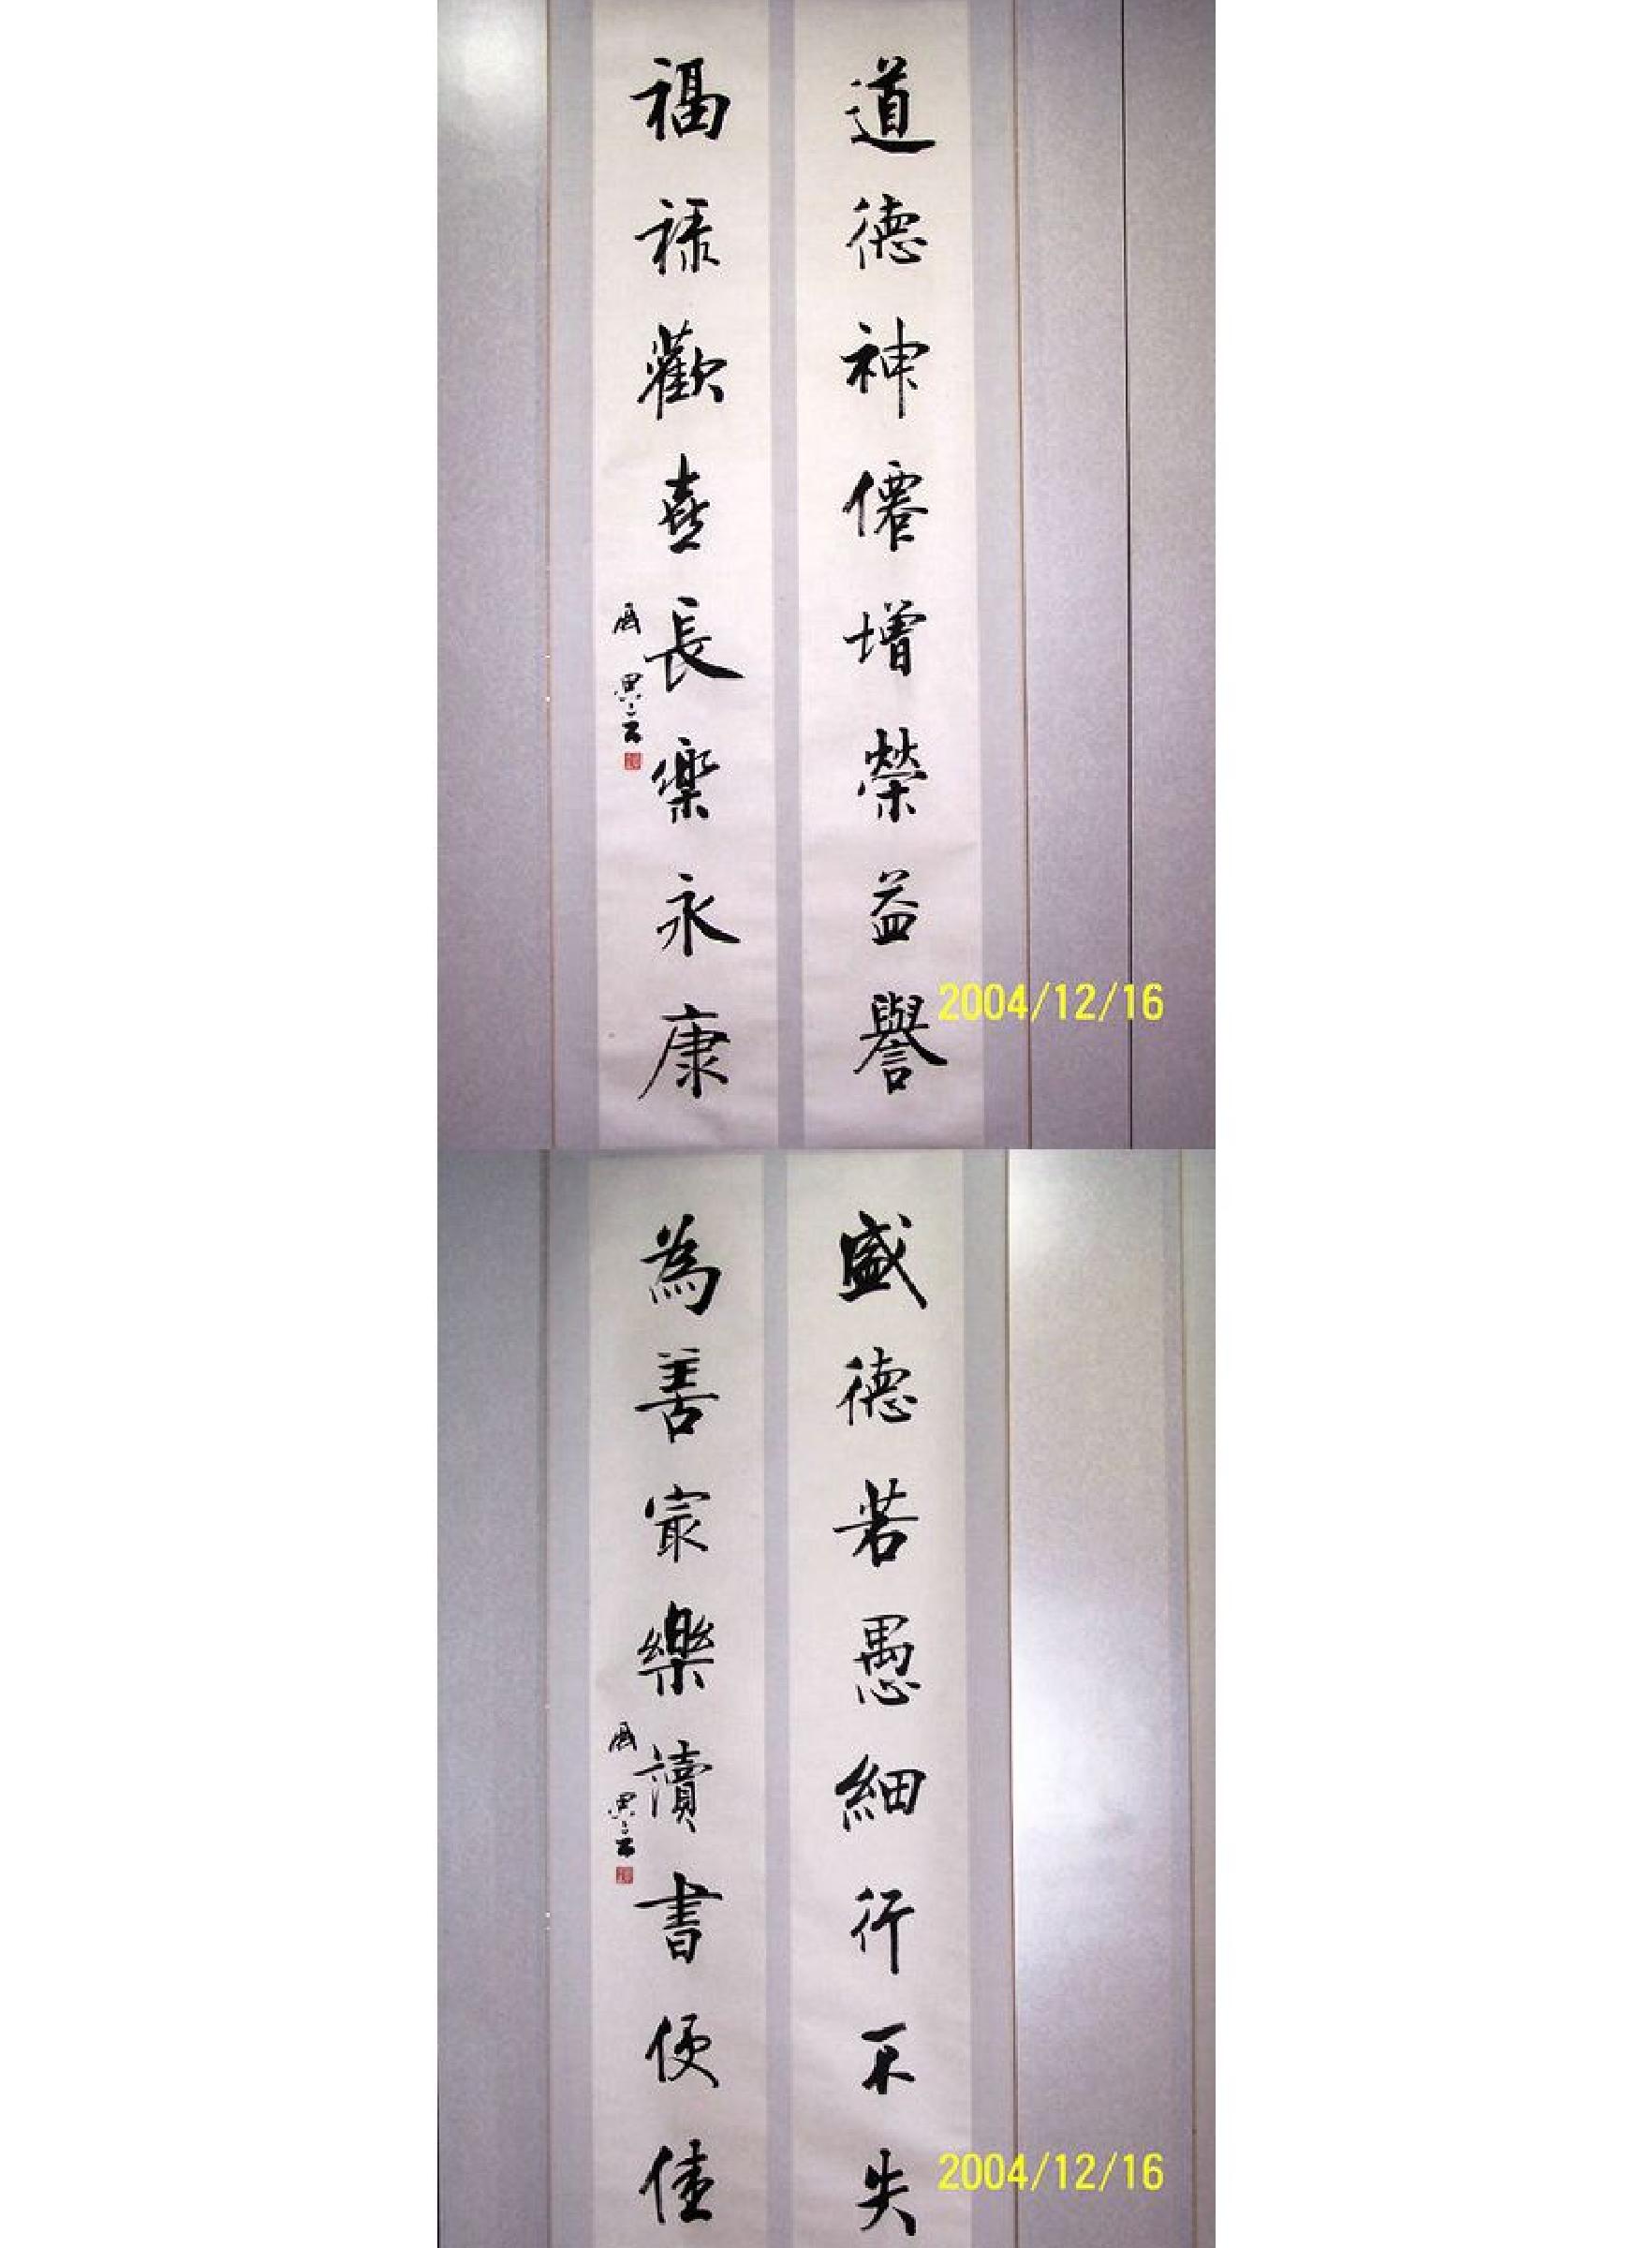 道德神僊增榮益譽
福祿歡喜長樂永康
2004/12/16
盛德若愚細行不失
為善㝡樂讀書便佳
2004/12/16